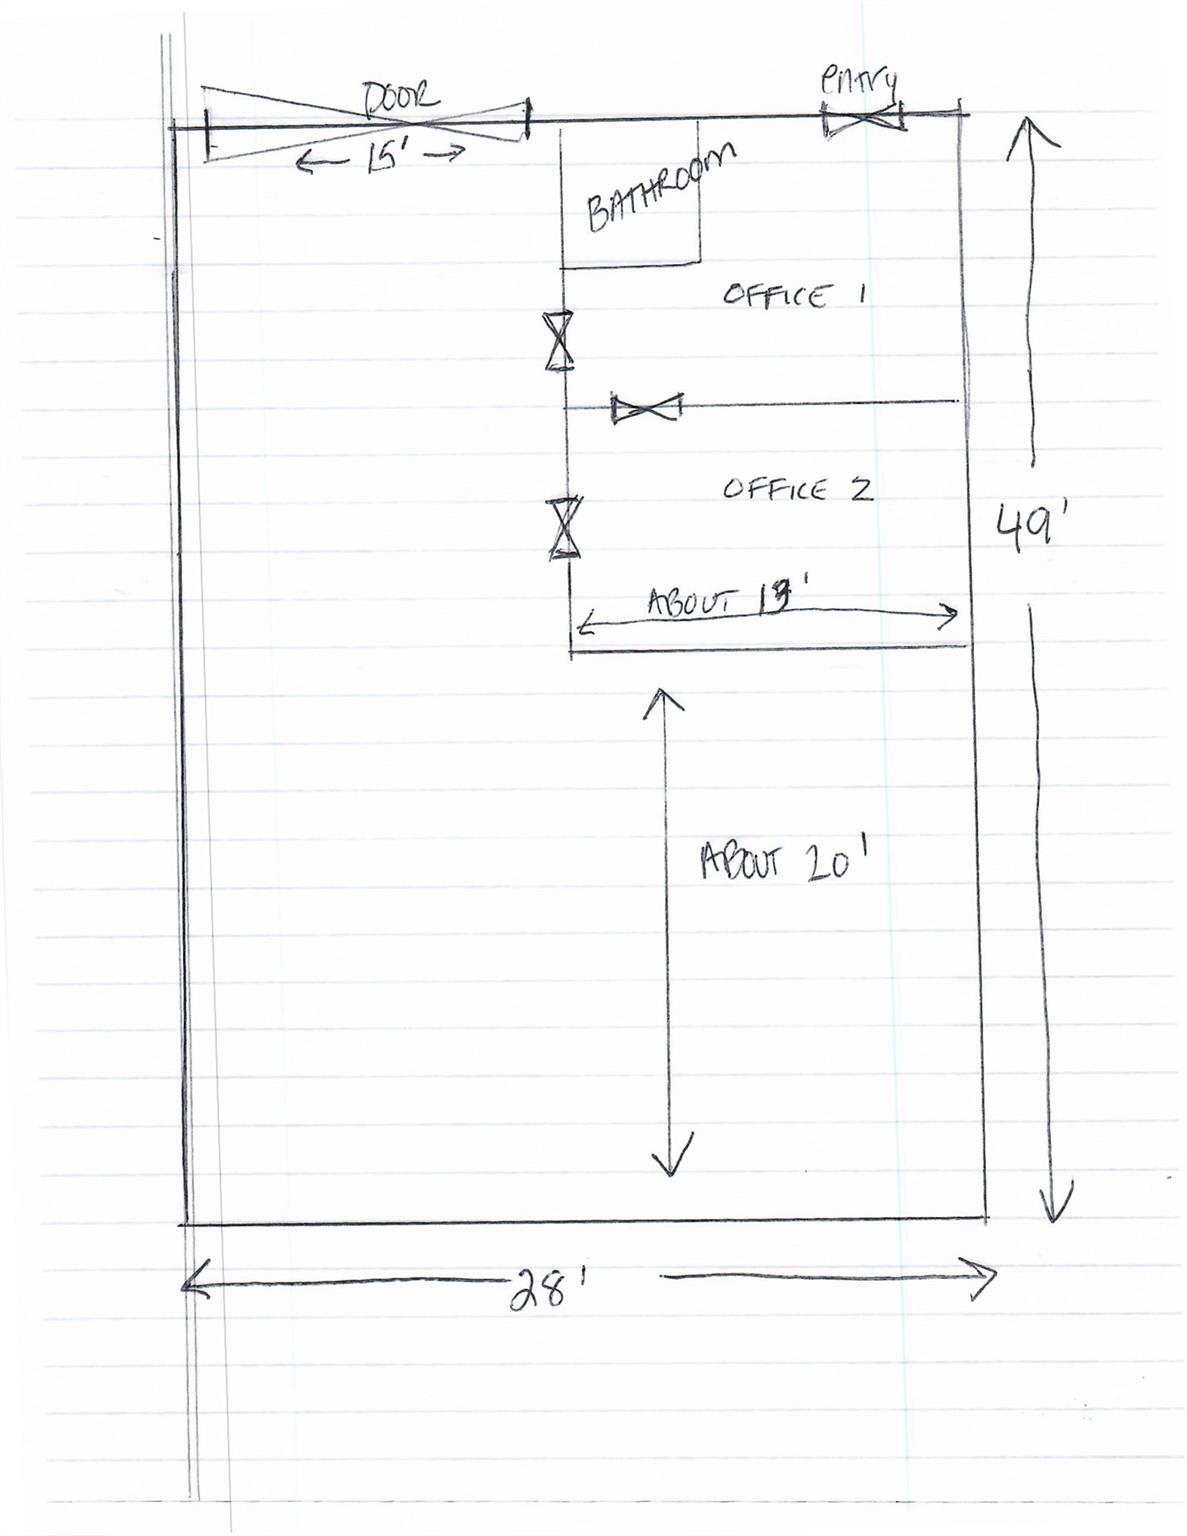 DOOR
entry
15'
BATHROOM
OFFICE 1
OFFICE 2
49'
ABOUT 13'
ABOUT 20'
28'